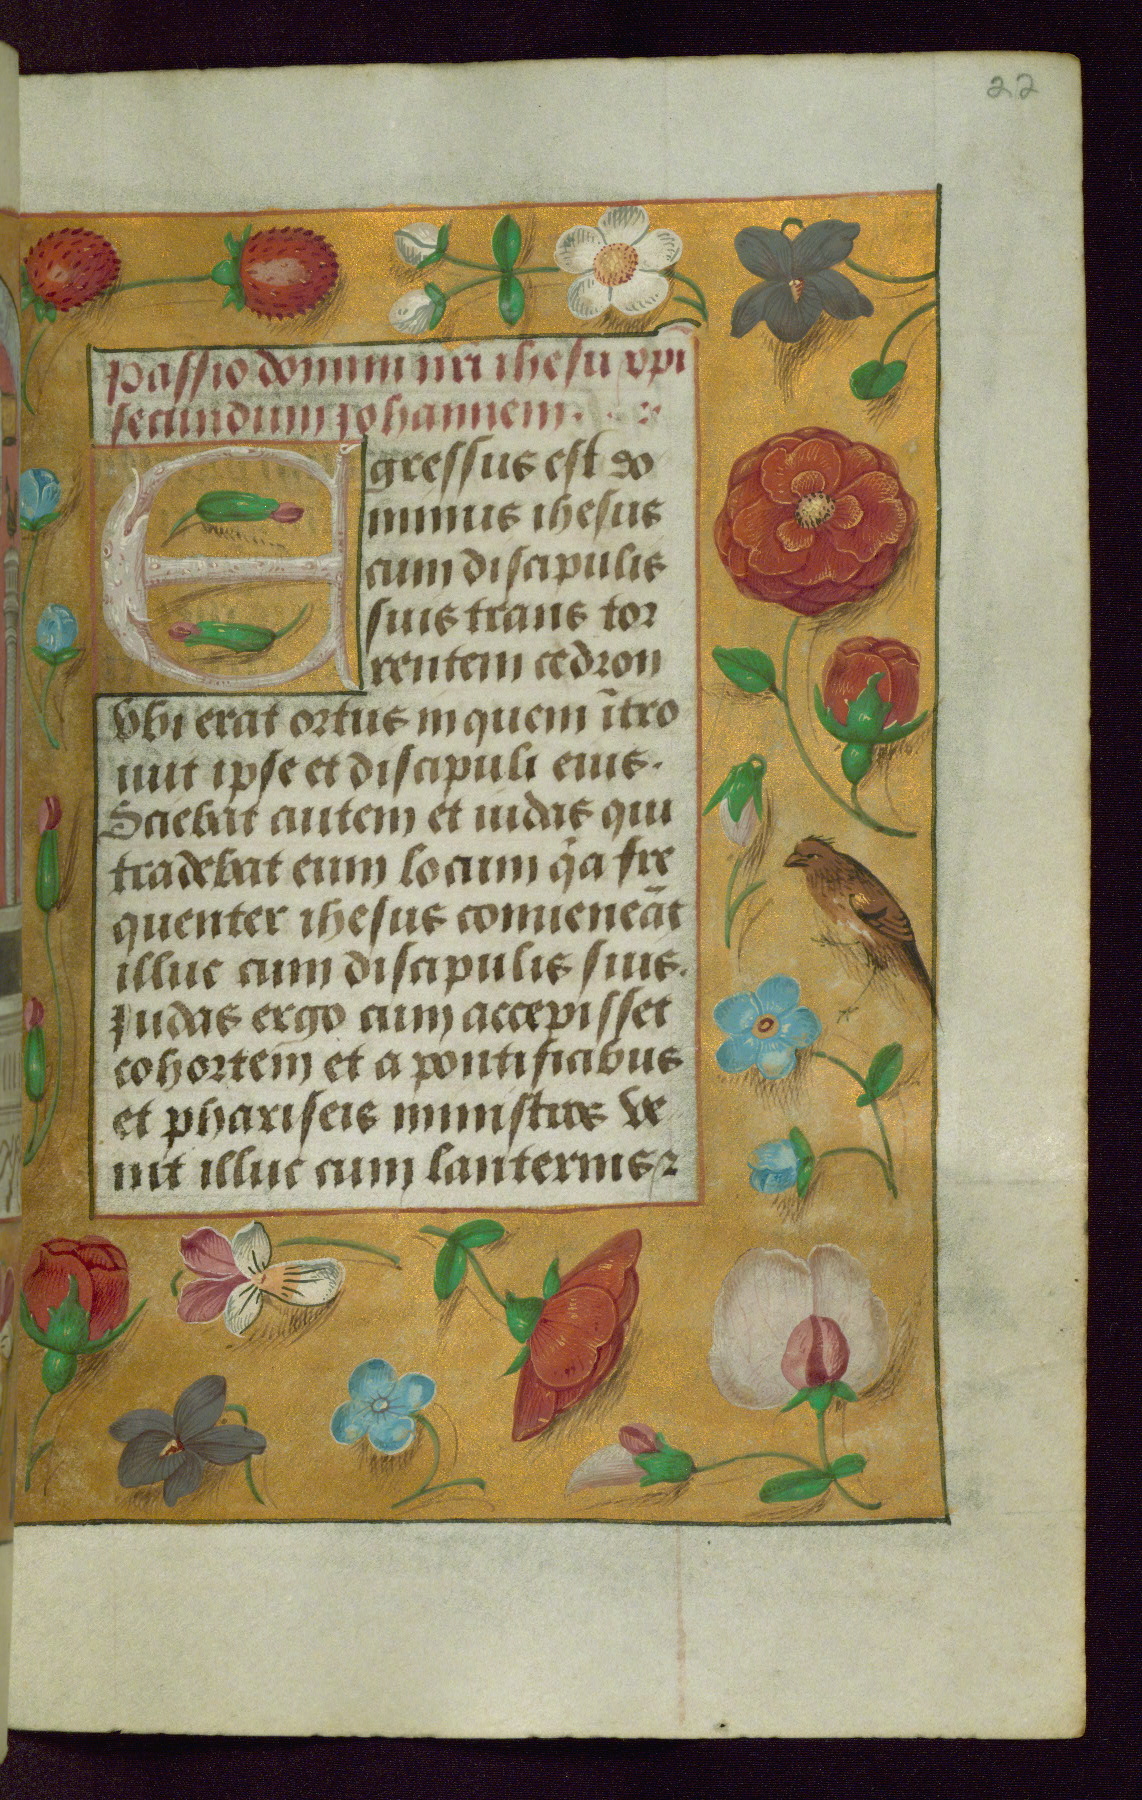 22
Passio domini nr̄i ihesu xp̄i
secundum johannem.
Egressus est do
minus ihesus
cum discipulis
suis trans tor
rentem cedron
Vbi erat ortus in quem ītro
iuit ipse et discipuli eius.
Sciebat autem et iudas qui
tradebat eum locum q̄a fre
quenter ihesus conueneāt
illuc cum discipulis suis.
Judas ergo cum accepisset
cohortem et a pontificibus
et phariseis ministros ve
nit illuc cum lanternis ⁊